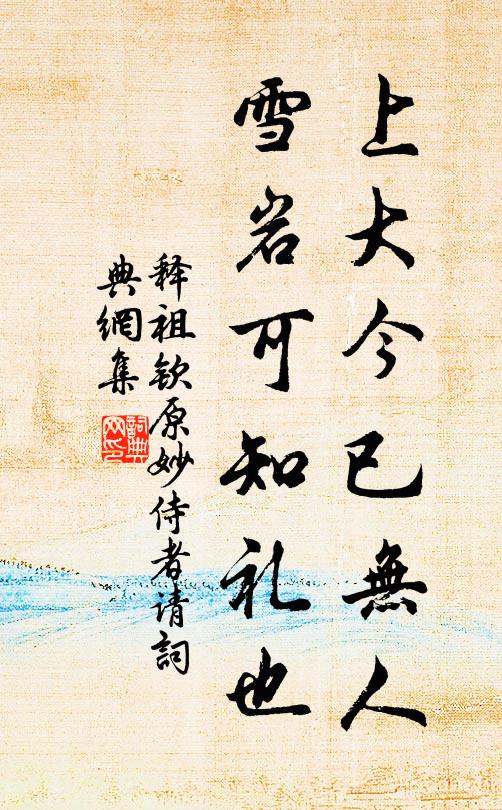 上大今已無人
雪岩可知礼也
释祖钦原妙侍者请詞
典網集
詞典
网印